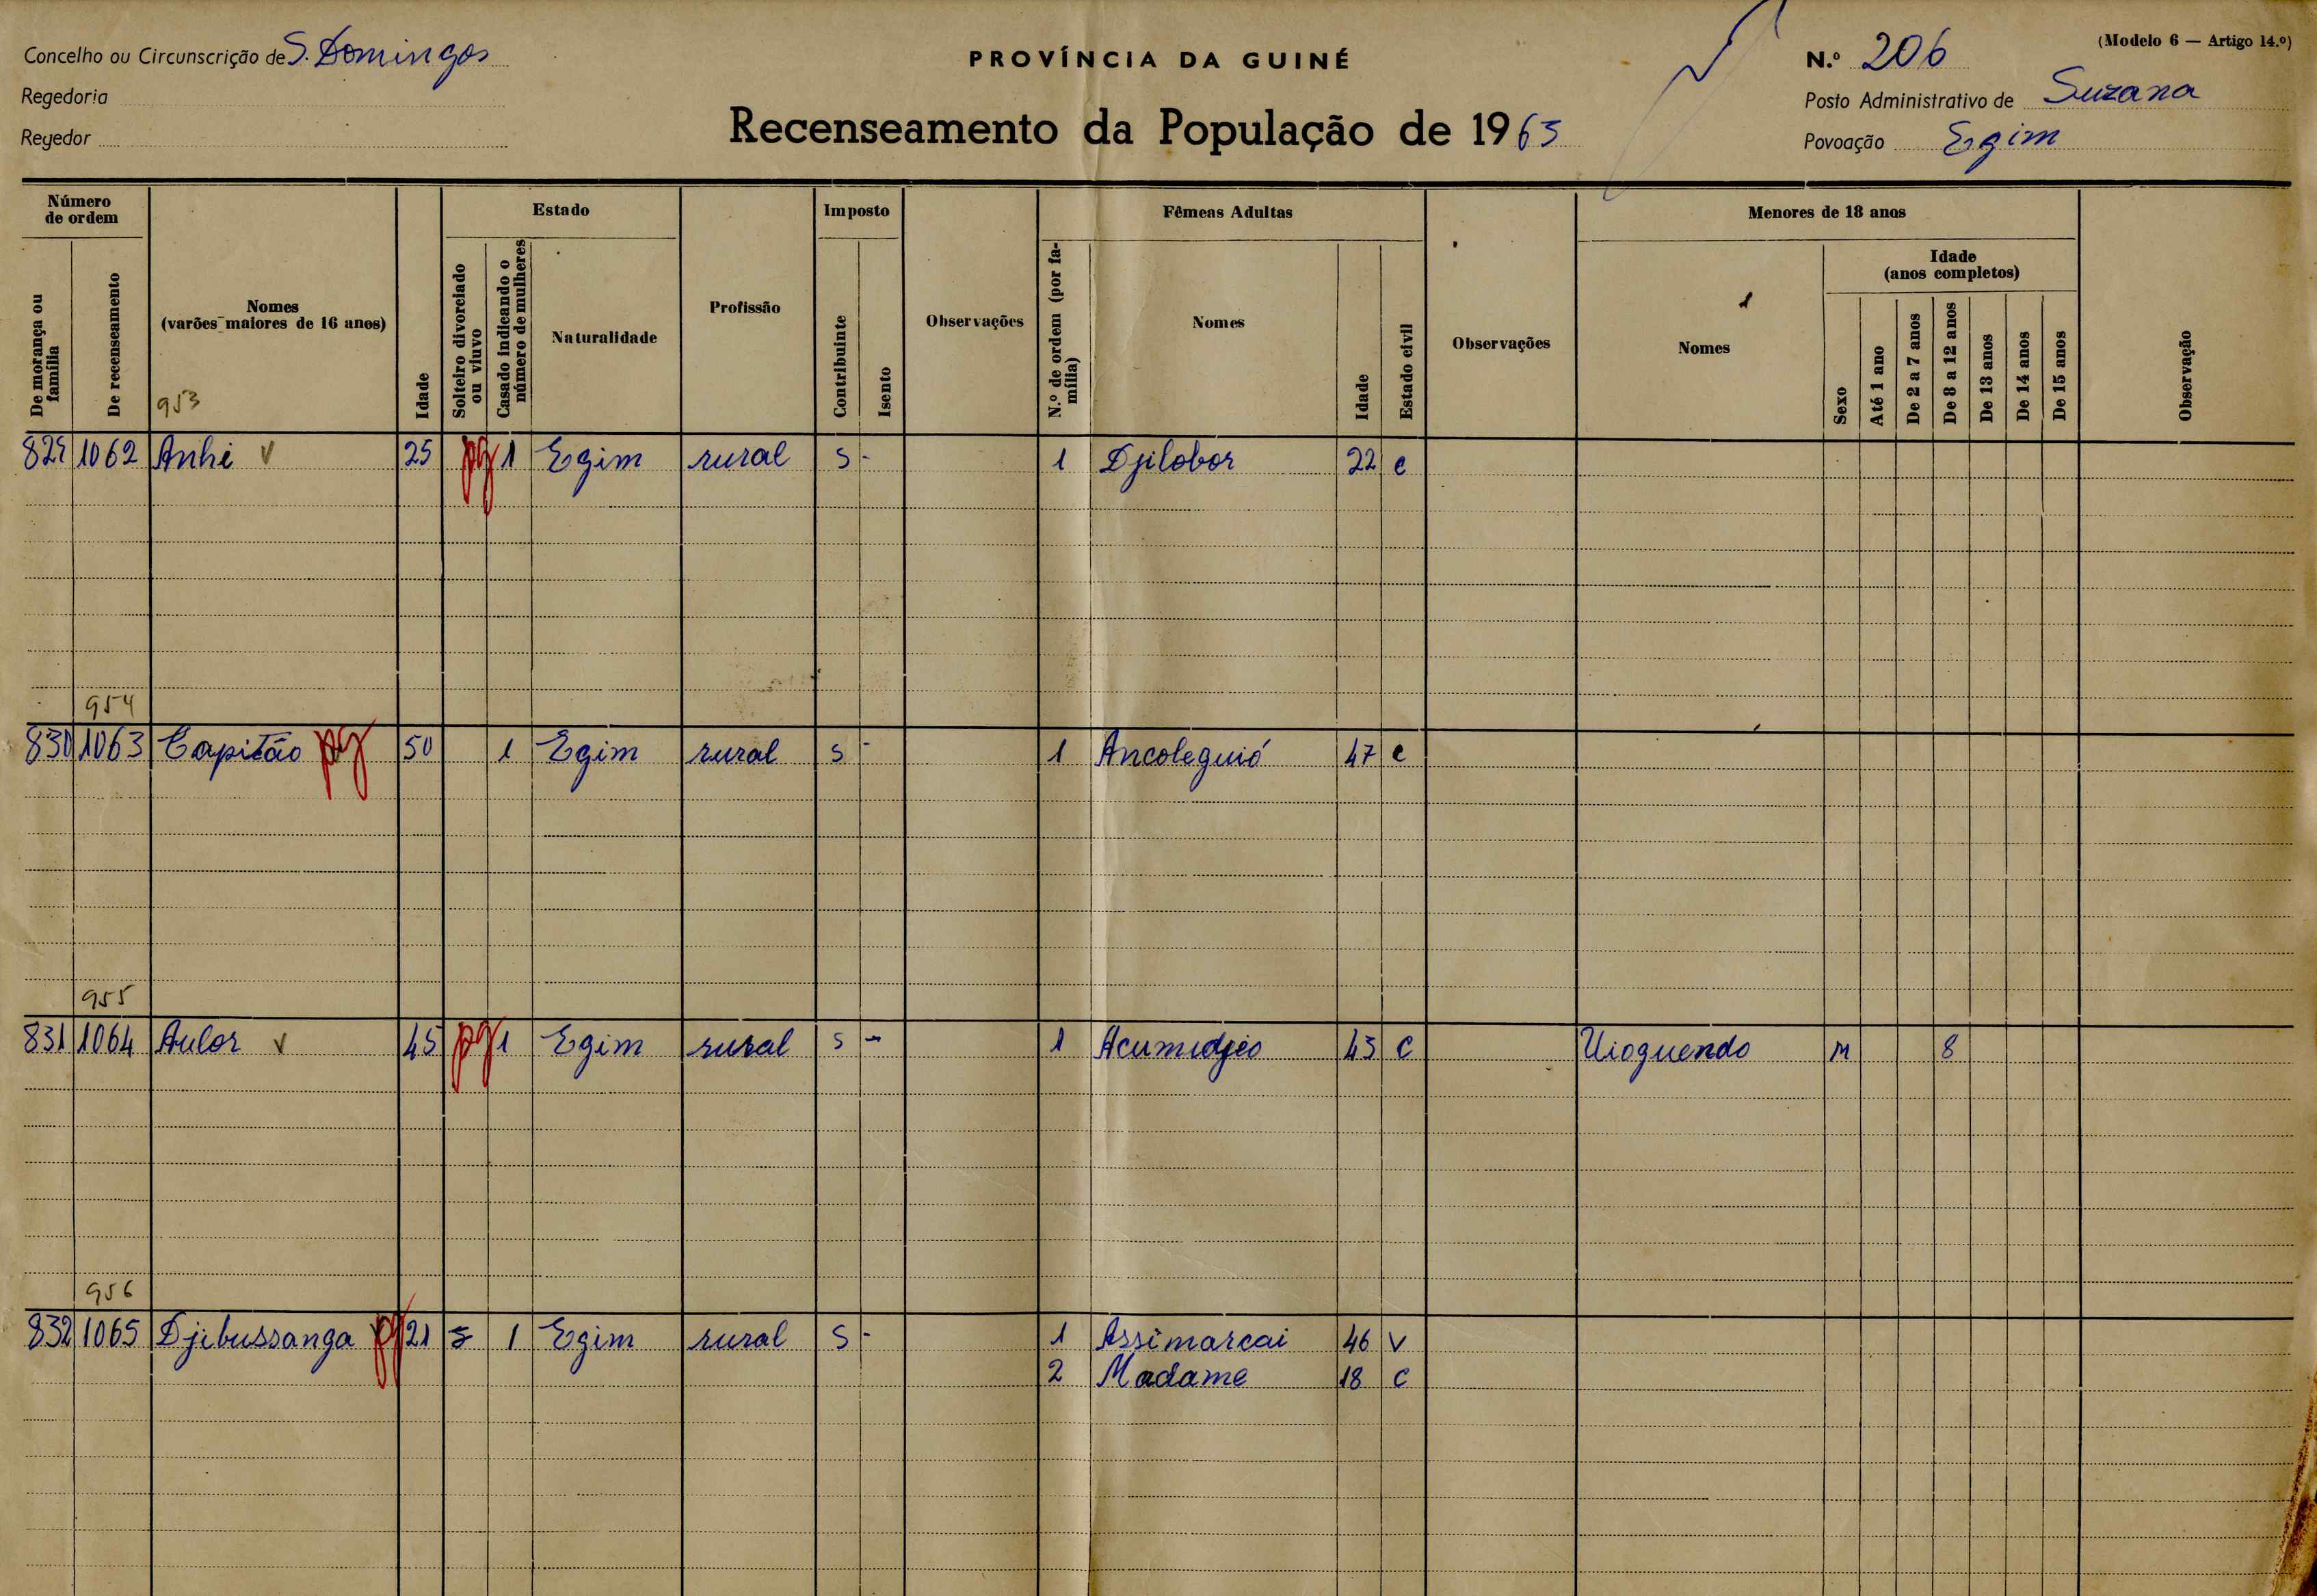 Concelho ou Circunscrição de S. Domingos
Regedoria
Regedor
PROVÍNCIA DA GUINÉ
Recenseamento da População de 1963
(Modelo 6 — Artigo 14.º)
N.º 206
Posto Administrativo de Suzana
Povoação Egim
Número de ordem
Estado
Imposto
Fêmeas Adultas
Menores de 18 anos
De morança ou família
De recenseamento
Nomes (varões maiores de 16 anos)
Idade
Solteiro divorciado ou viuvo
Casado indicando o número de mulheres
Naturalidade
Profissão
Contribuinte
Isento
Observações
N.º de ordem (por família)
Nomes
Idade
Estado civil
Observações
Nomes
Sexo
Idade (anos completos)
Até 1 ano
De 2 a 7 anos
De 8 a 12 anos
De 13 anos
De 14 anos
De 15 anos
Observação
953
829 1062 Anhi v 25 pg 1 Egim rural S - 1 Djilobor 22 c
954
830 1063 Capitão pg 50 1 Egim rural S - 1 Ancoleguió 47 c
955
831 1064 Aulor v 45 pg 1 Egim rural S - 1 Acumidjeo 43 c Uioguendo M 8
956
832 1065 Djibussanga pg 21 s 1 Egim rural S - 1 Assimarcai 46 v
2 Madame 18 c